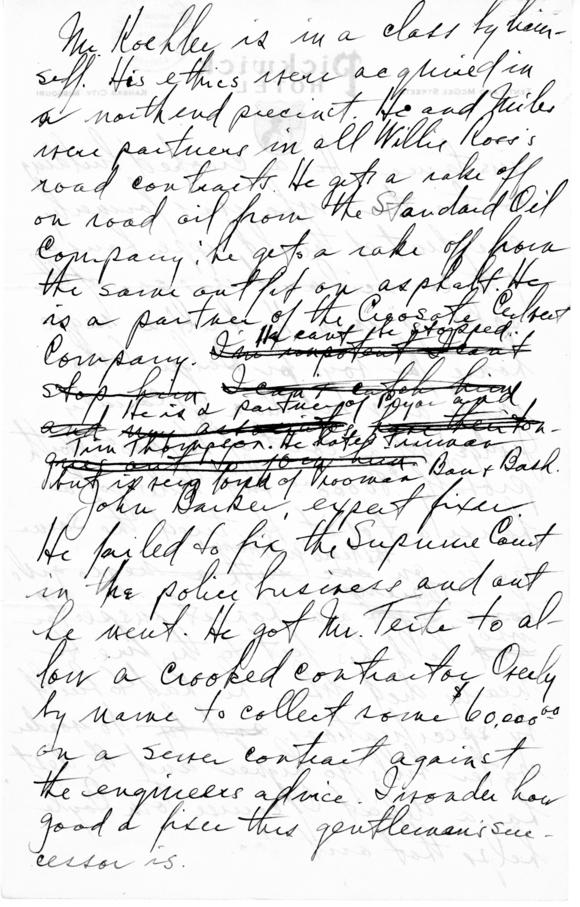 Mr. Koehler is in a class by him-
self. His ethics were acquired in
a north end precinct. He and Miles
were partners in all Willie Ross's
road contracts. He gets a rake off
on road oil from the Standard Oil
Company; he gets a rake off from
the same outfit on asphalt. He
is a partner of the Creosote Culvert
He can't be stopped.
Company. I'm impotent I can't
stop him I can't catch him
He is a partner of Pryor and
and my
Tim Thompson. He hates Truman
but is very fond of Vrooman Ban & Bash.
John Barker, expert fixer.
He failed to fix the Supreme Court
in the police business and out
he went. He got Mr. Teite to al-
low a crooked contractor, Overly
by name to collect some $60,000.00
on a sewer contract against
the engineers advice. I wonder how
good a fixer this gentleman's suc-
cessor is.